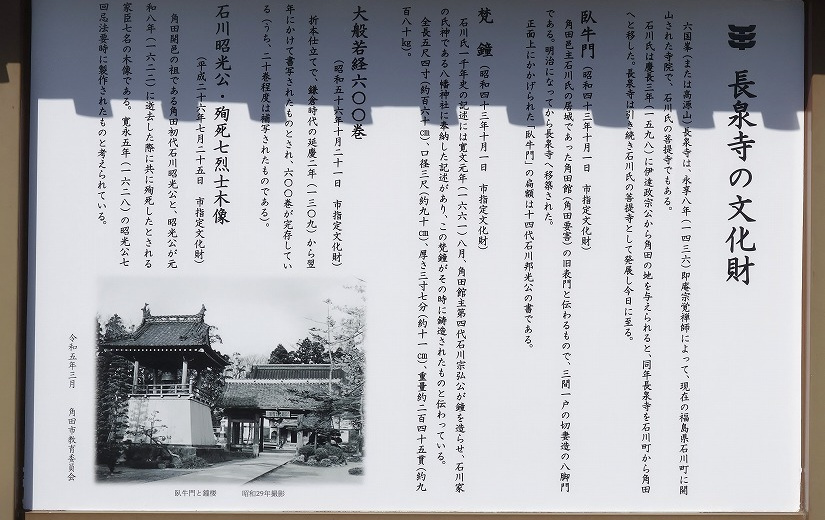 長泉寺の文化財
六国峯(または高源山)長泉寺は、永享八年(一四三六)即庵宗覚禅師によって、現在の福島県石川町に開
山された寺院で、石川氏の菩提寺でもある。
石川氏は慶長三年(一五九八)に伊達政宗公から角田の地を与えられると、同年長泉寺を石川町から角田
へと移した。長泉寺は引き続き石川氏の菩提寺として発展し今日に至る。
臥牛門(昭和四十三年十月一日 市指定文化財)
角田邑主石川氏の居城であった角田館(角田要害)の旧表門と伝わるもので、三間一戸の切妻造の八脚門
である。明治になってから長泉寺へ移築された。
正面上にかかげられた「臥牛門」の扁額は十四代石川邦光公の書である。
梵 鐘(昭和四十三年十月一日 市指定文化財)
石川氏一千年史の記述には寛文元年(一六六一)八月、角田館主第四代石川宗弘公が鐘を造らせ、石川家
の氏神である八幡神社に奉納した記述があり、この梵鐘がその時に鋳造されたものと伝わっている。
全長五尺四寸(約百六十㎝)、口径三尺(約九十㎝)、厚さ三寸七分(約十一㎝)、重量約二百四十五貫(約九
百八十㎏)。
大般若経六〇〇巻
(昭和五十六年十月二十一日 市指定文化財)
折本仕立てで、鎌倉時代の延慶二年(一三〇九)から翌
年にかけて書写されたものとされ、六〇〇巻が完存してい
る(うち、二十巻程度は補写されたものである)。
石川昭光公・殉死七烈士木像
(平成二十六年七月二十五日 市指定文化財)
角田開邑の祖である角田初代石川昭光公と、昭光公が元
和八年(一六二二)に逝去した際に共に殉死したとされる
家臣七名の木像である。寛永五年(一六二八)の昭光公七
回忌法要時に製作されたものと考えられている。
臥牛門と鐘楼 昭和29年撮影
令和五年三月 角田市教育委員会